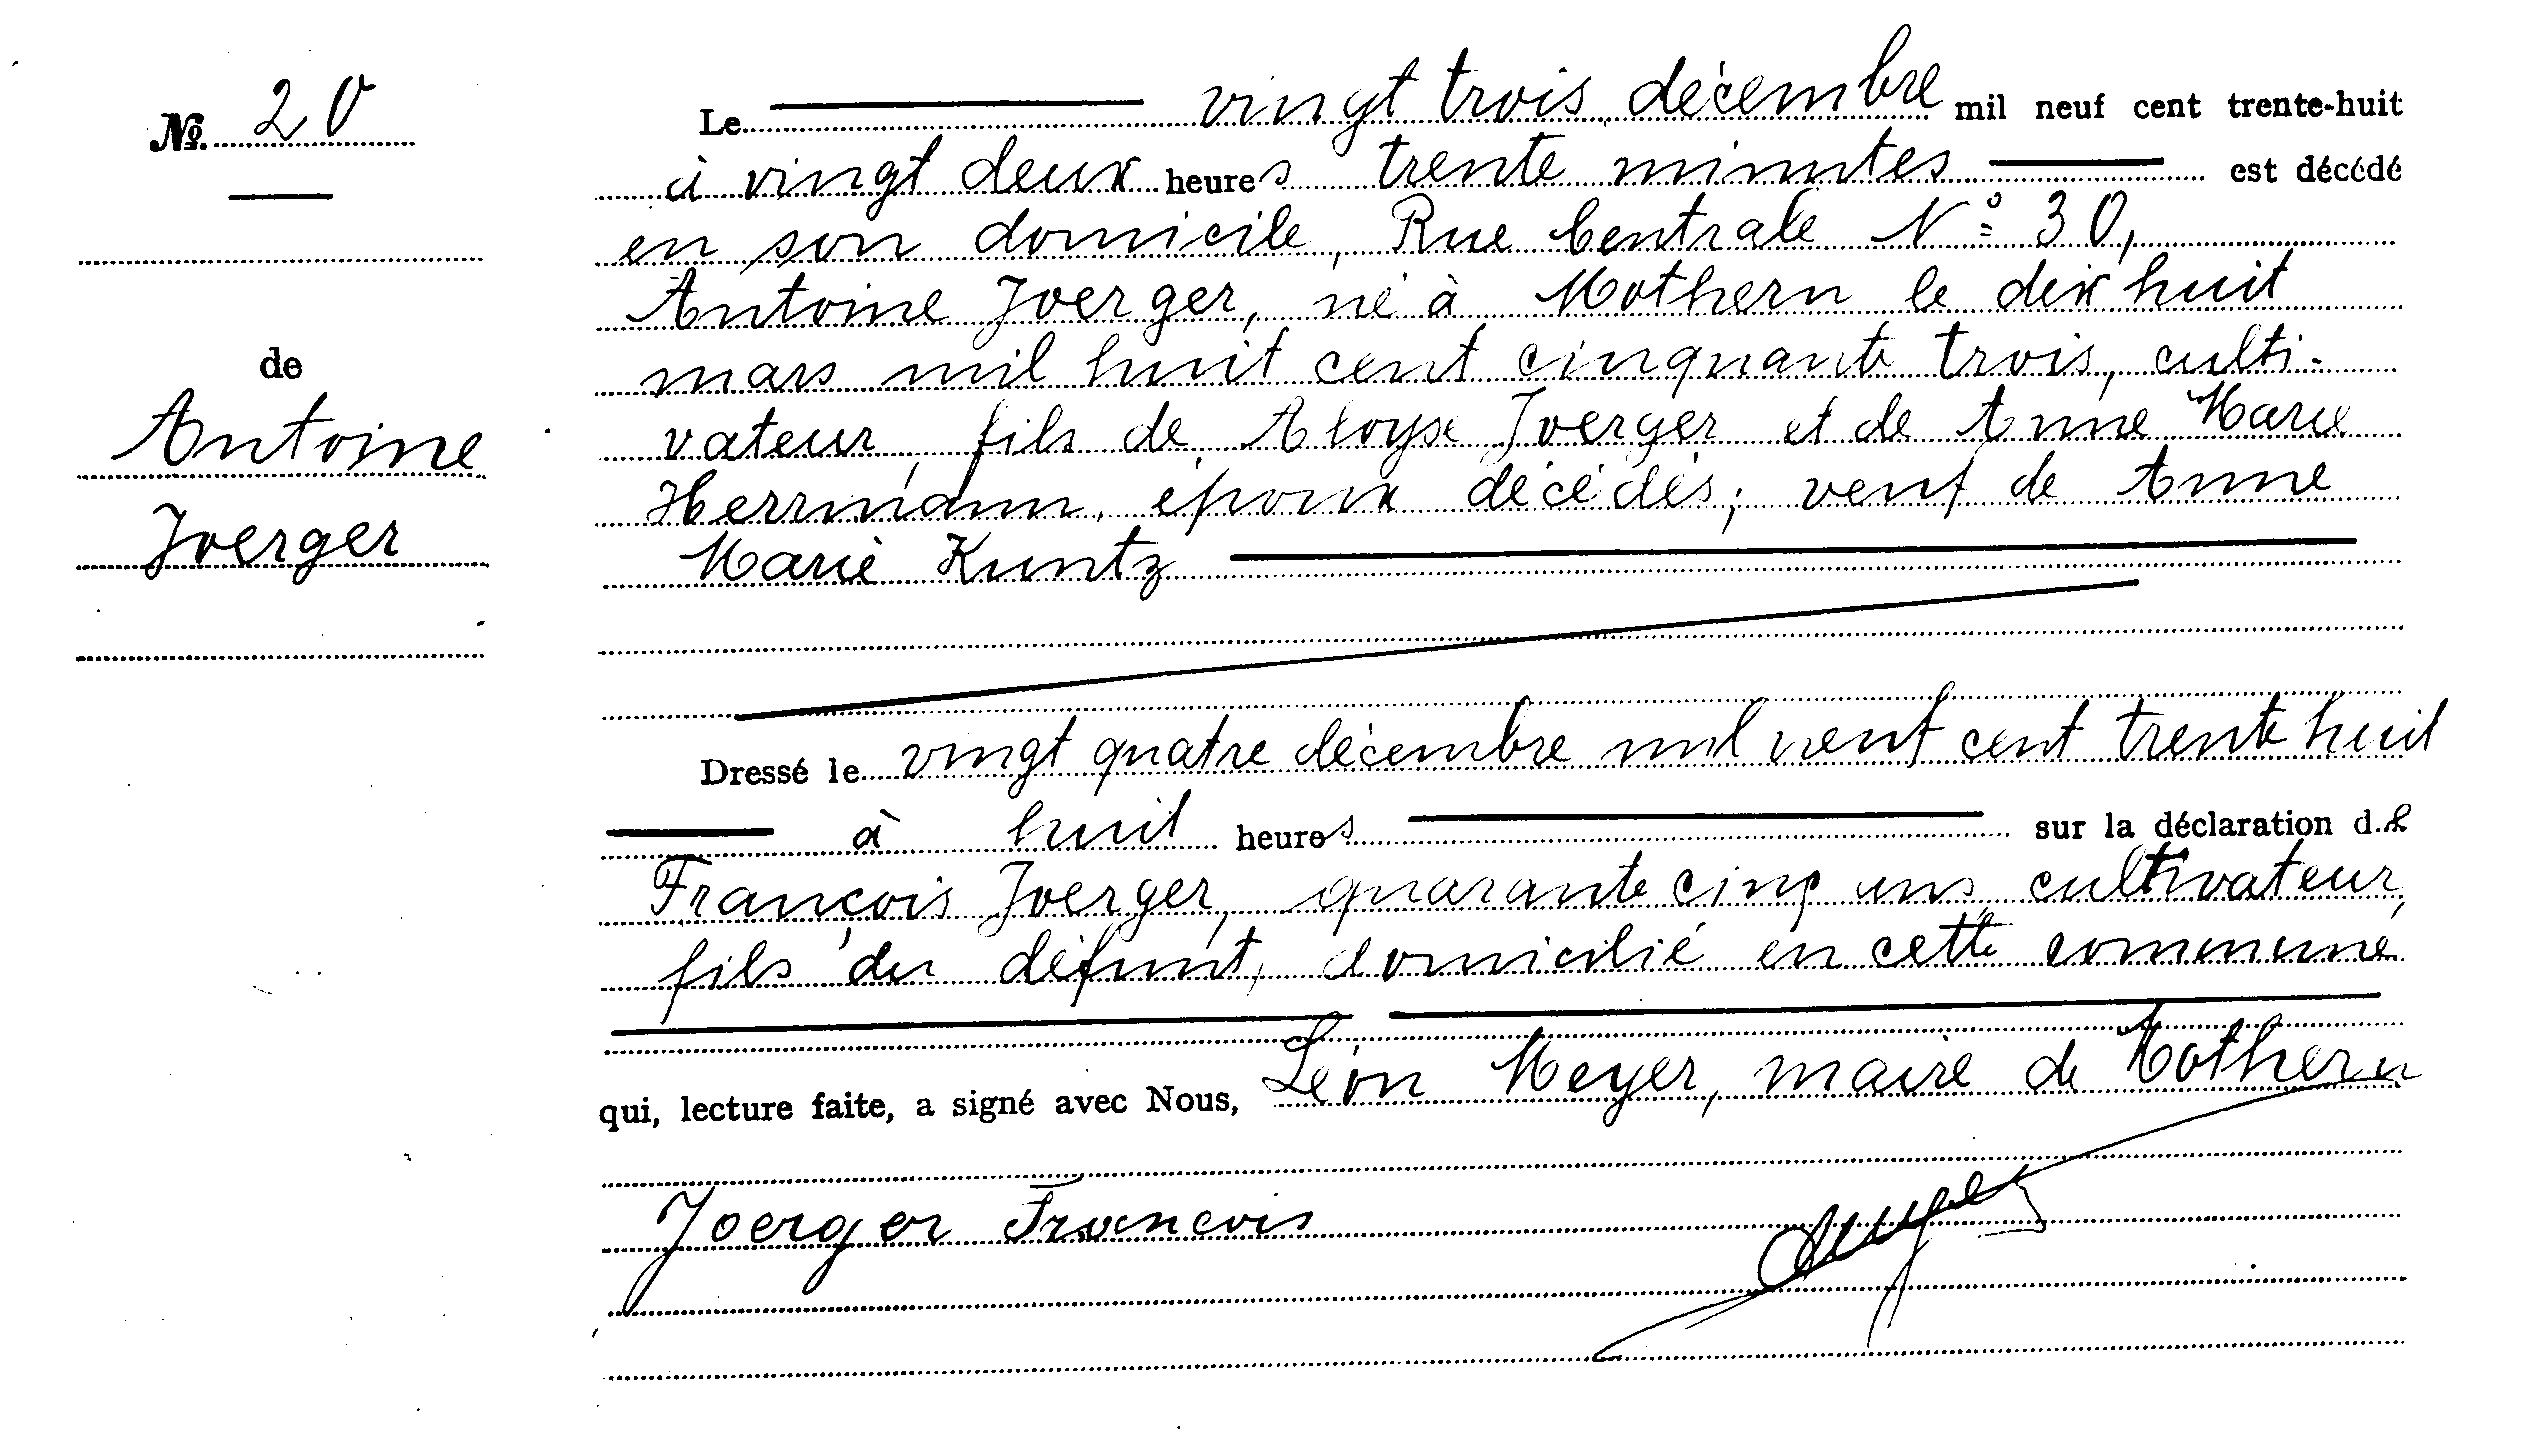 № 20
de
Antoine
Joerger
Le vingt trois décembre mil neuf cent trente-huit
à vingt deux heures trente minutes est décédé
en son domicile, Rue Centrale N° 30,
Antoine Joerger, né à Mothern le dix huit
mars mil huit cent cinquante trois, culti-
vateur, fils de Aloyse Joerger et de Anne Marie
Herrmann, époux décédés; veuf de Anne
Marie Kuntz
Dressé le vingt quatre décembre mil neuf cent trente huit
à huit heures sur la déclaration de
François Joerger, quarante cinq ans, cultivateur,
fils du défunt, domicilié en cette commune
qui, lecture faite, a signé avec Nous, Léon Meyer, maire de Mothern
Joerger Francois
Meyer